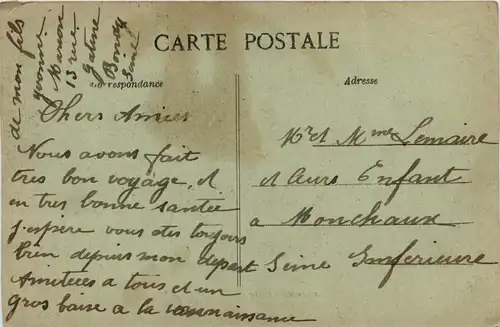 CARTE POSTALE
Correspondance
Adresse
Chers Amies
Nous avons fait
tres bon voyage, et
en tres bonne santée
j'espère vous etes toujours
bien depuis mon depart
Amitiees a tous et un
gros baise a la connaissance
de mon fils
Yvonne
Marion
13 rue
Gatine
Bondy
Seine
Mr et Mme Lemaire
et leurs Enfant
a Monchaux
Seine Inferieure